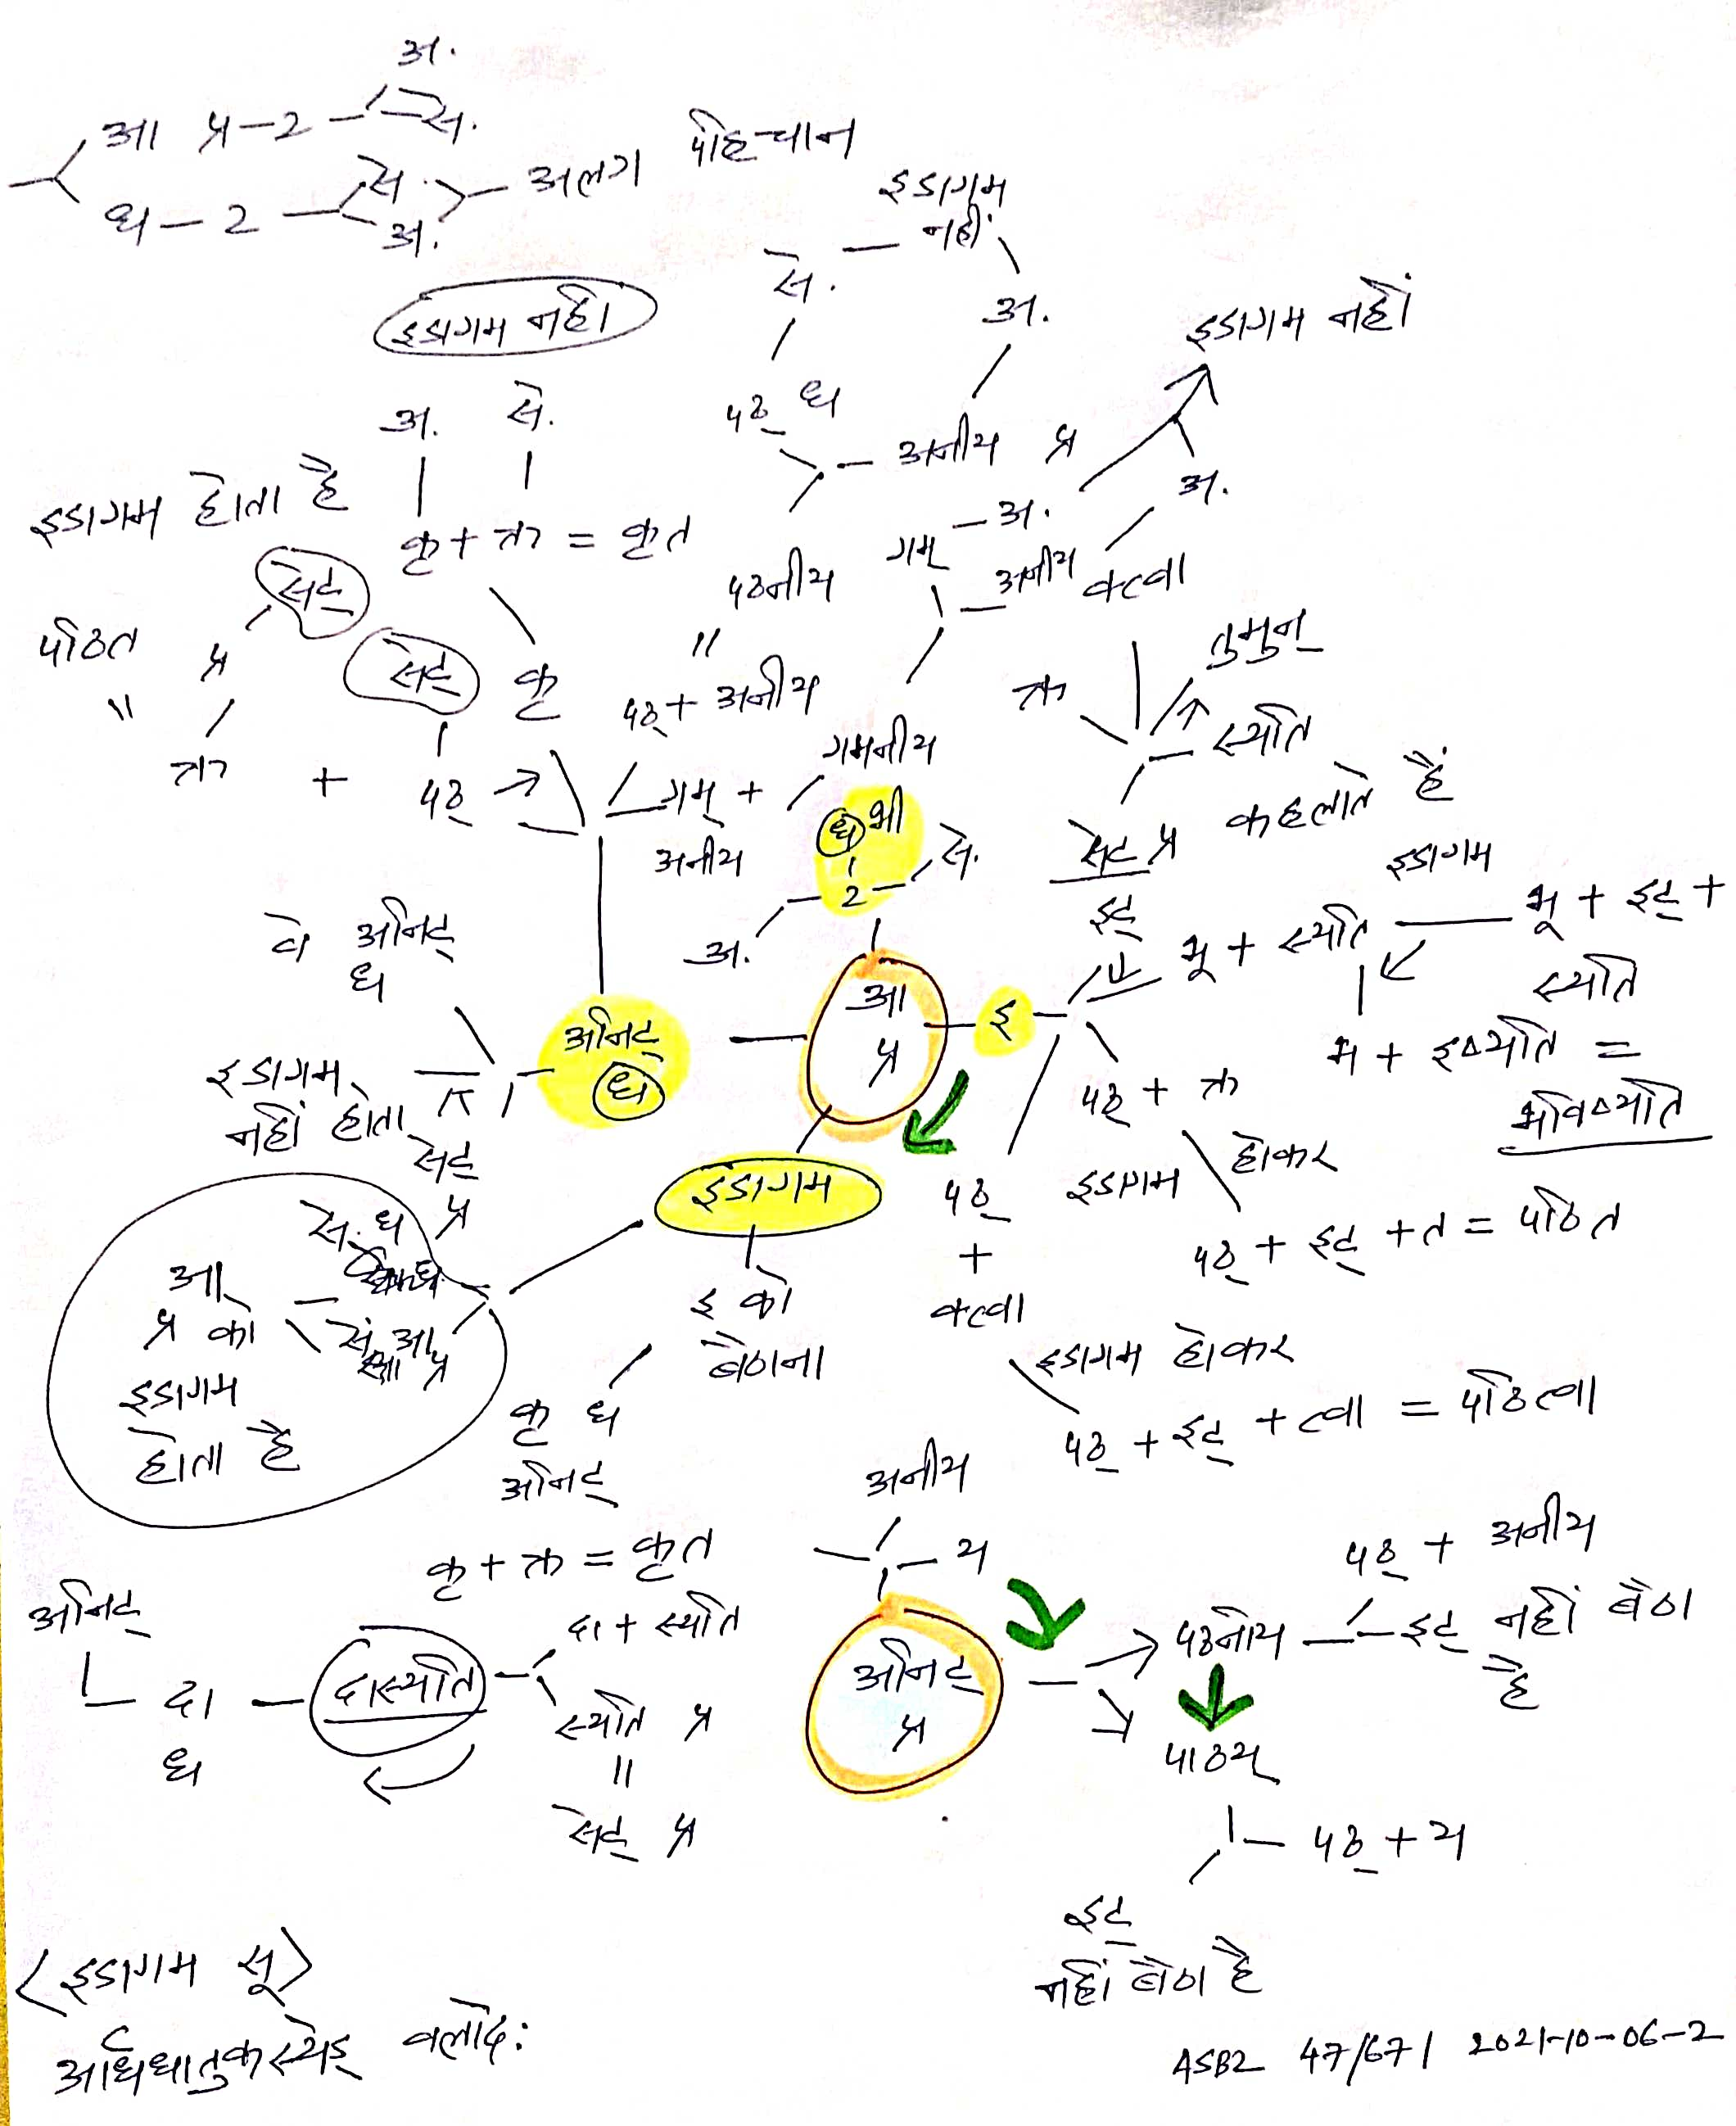 अ.
आ प्र - 2 - से.
ध - 2 - से. - अलग पहिचान
अ.
इडागम
नहीं
से.
अ.
इडागम नहीं
इडागम नहीं
अ. से.
पठ् ध
अनीय प्र
अ.
इडागम होता है
कृ + क्त = कृत
गम् - अ.
अनीय
क्त्वा
सेट्
पठनीय
"
पठ् + अनीय
पठित प्र
"
सेट्
कृ
तुमुन्
क्त
स्यति
क्त + पठ्
गम् +
अनीय
गमनीय
ध भी
2 - से.
अ.
सेट् प्र कहलाते हैं
इट्
इडागम
भू + स्यति
भू + इट् +
स्यति
भ + इष्यति =
भविष्यति
वे अनिट्
ध
अनिट्
ध
आ
प्र
इ
इडागम
नहीं होता
सेट्
प्र
पठ् + क्त
इडागम होकर
पठ् + इट् + त = पठित
इडागम
पठ्
+
क्त्वा
इडागम होकर
पठ् + इट् + त्वा = पठित्वा
इ को
बैठाना
से. ध
आ
प्र को
से. आ
प्र
इडागम
होता है
कृ ध
अनिट्
कृ + क्त = कृत
अनीय
य
अनिट्
प्र
पठ् + अनीय
पठनीय - इट् नहीं बैठा
है
पाठय्
पठ् + य
इट्
नहीं बैठा है
अनिट्
दा
ध
दास्यति
दा + स्यति
स्यति प्र
॥
सेट् प्र
<इडागम सू>
आर्धधातुकस्येड् वलादेः
ASB2 47/67 / 2021-10-06-2